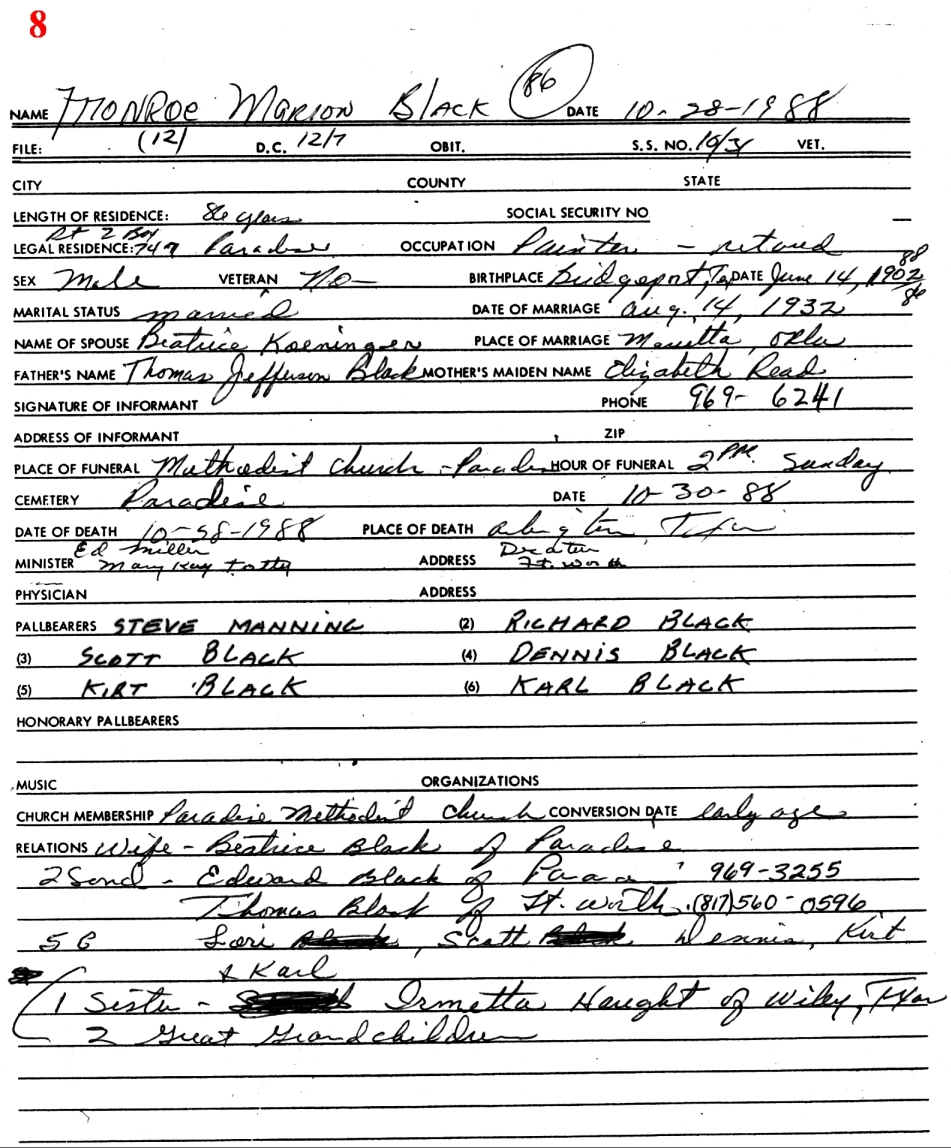 8
NAME MONROE MARION BLACK 86 DATE 10-28-1988
FILE: (12) D.C. 12/7 OBIT. S.S. NO. 10/31 VET.
CITY COUNTY STATE
LENGTH OF RESIDENCE: 86 years SOCIAL SECURITY NO
Rt 2 Box
LEGAL RESIDENCE: 747 Paradise OCCUPATION Painter - retired
SEX Male VETERAN No BIRTHPLACE Bridgeport, Tex DATE June 14, 1902 88 86
MARITAL STATUS married DATE OF MARRIAGE Aug. 14, 1932
NAME OF SPOUSE Beatrice Koeninger PLACE OF MARRIAGE Marietta, Okla
FATHER'S NAME Thomas Jefferson Black MOTHER'S MAIDEN NAME Elizabeth Read
SIGNATURE OF INFORMANT PHONE 969-6241
ADDRESS OF INFORMANT ZIP
PLACE OF FUNERAL Methodist Church - Paradise HOUR OF FUNERAL 2 PM Sunday
CEMETERY Paradise DATE 10-30-88
DATE OF DEATH 10-28-1988 PLACE OF DEATH Arlington, Texas
Ed Miller Decatur
MINISTER Mary Kay Totty ADDRESS Ft. Worth
PHYSICIAN ADDRESS
PALLBEARERS STEVE MANNING (2) RICHARD BLACK
(3) SCOTT BLACK (4) DENNIS BLACK
(5) KIRT BLACK (6) KARL BLACK
HONORARY PALLBEARERS
MUSIC ORGANIZATIONS
CHURCH MEMBERSHIP Paradise Methodist Church CONVERSION DATE early age
RELATIONS Wife - Beatrice Black of Paradise
2 Sons - Edward Black of 969-3255
Thomas Black of Ft. Worth (817)560-0596
5 G Lori, Scott Dennis, Kirt
& Karl
1 Sister - Irmetta Haught of Wiley, Texas
2 Great Grandchildren